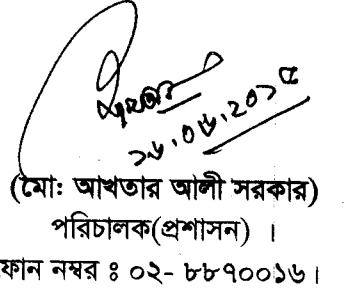 ১৬.০৬.২০১৫
(মোঃ আখতার আলী সরকার)
পরিচালক(প্রশাসন) ।
ফোন নম্বর ঃ ০২- ৮৮৭০০১৬।